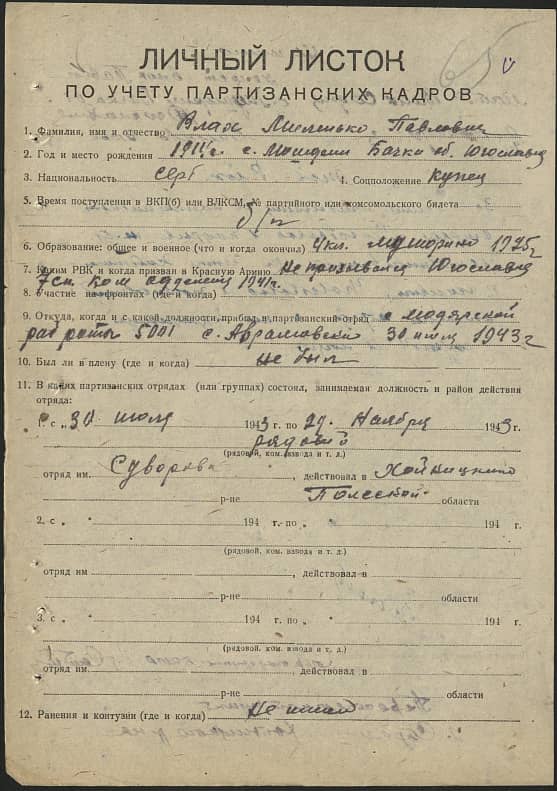 ЛИЧНЫЙ ЛИСТОК
ПО УЧЕТУ ПАРТИЗАНСКИХ КАДРОВ
1. Фамилия, имя и отчество Влах Миленько Павлович
2. Год и место рождения 1911г. с. Бачка об. Югославия
3. Национальность серб 4. Соцположение купец
5. Время поступления в ВКП(б) или ВЛКСМ, № партийного или комсомольского билета
б/п
6. Образование: общее и военное (что и когда окончил) 4 кл. 1925г
7. Каким РВК и когда призван в Красную Армию Не призывался Югославия
ком отделения 1941г.
8. Участие на фронтах (где и когда)
9. Откуда, когда и с какой должности прибыл в партизанский отряд с мадярской
раб роты 5001 с. 30 июля 1943г
10. Был ли в плену (где и когда) не был
11. В каких партизанских отрядах (или группах) состоял, занимаемая должность и район действия
отряда:
1. с „ 30 июля 1943 г. по 29 Ноября 1943 г.
рядовой
(рядовой, ком. взвода и т. д.)
отряд им. Суворова, действовал в Хойницкого
р-не Полесской области
2. с „ „ 194 г. по „ „ 194 г.
(рядовой, ком. взвода и т. д.)
отряд им , действовал в
р-не области
3. с „ „ 194 г. по „ „ 194 г.
(рядовой, ком. взвода и т. д.)
отряд им. , действовал в
р-не области
12. Ранения и контузии (где и когда) Не имел